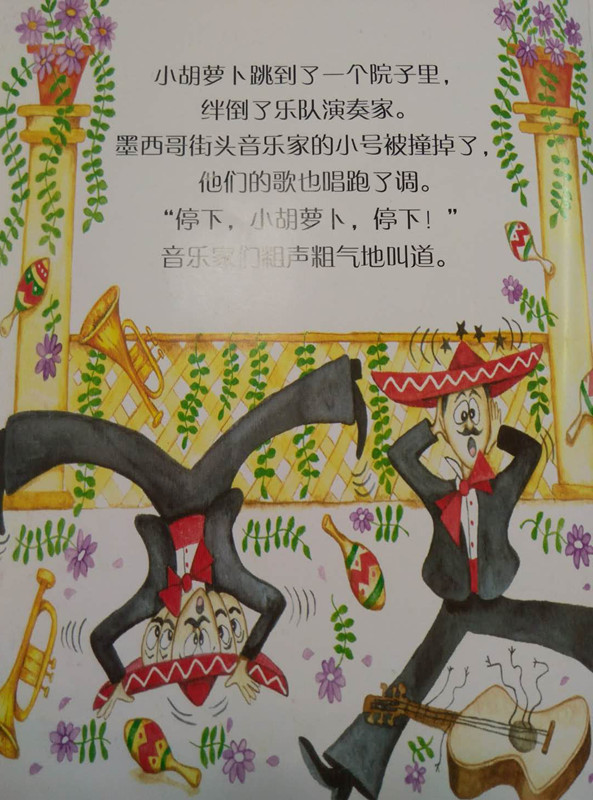 小胡萝卜跳到了一个院子里，
绊倒了乐队演奏家。
墨西哥街头音乐家的小号被撞掉了，
他们的歌也唱跑了调。
“停下，小胡萝卜，停下！”
音乐家们粗声粗气地叫道。